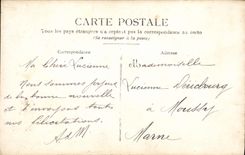 CARTE POSTALE
Tous les pays étrangers n'acceptent pas la correspondance au recto
(Se renseigner à la poste)
Correspondance
Adresse
Ma Chère Lucienne
Nous sommes
de la bonne nouvelle
et t'envoyons toutes
nos félicitations.
Mademoiselle
Lucienne
à Moussy
Marne